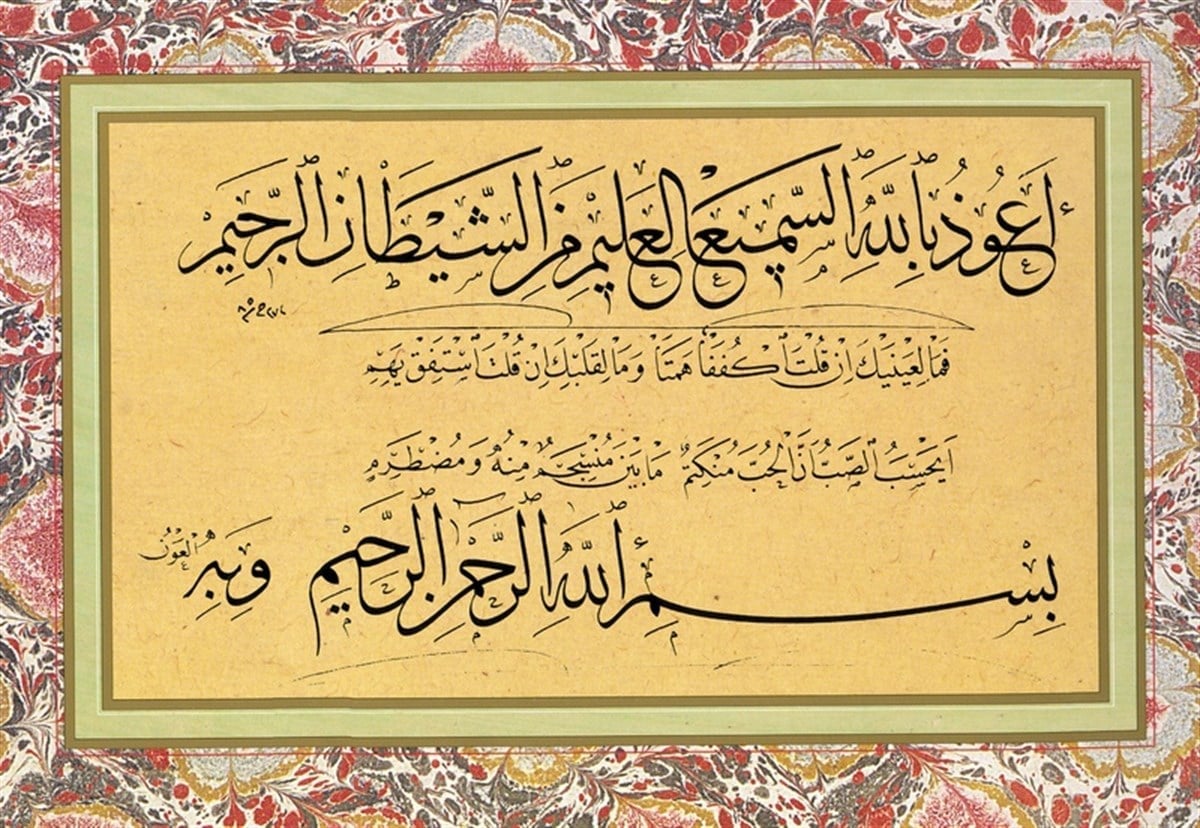 أَعُوذُ بِاللهِ السَّمِيعِ الْعَلِيمِ مِنَ الشَّيْطَانِ الرَّجِيمِ
فَمَا لِعَيْنَيْكَ اِنْ قُلْتَ اكْفُفَا هَمَتَا وَمَا لِقَلْبِكَ اِنْ قُلْتَ اسْتَفِقْ يَهِمِ
اَيَحْسَبُ الصَّبُّ اَنَّ الْحُبَّ مُنْكَتِمٌ مَا بَيْنَ مُنْسَجِمٍ مِنْهُ وَمُضْطَرِمِ
بِسْمِ اللهِ الرَّحْمٰنِ الرَّحِيمِ وَبِهِ الْعَوْنُ